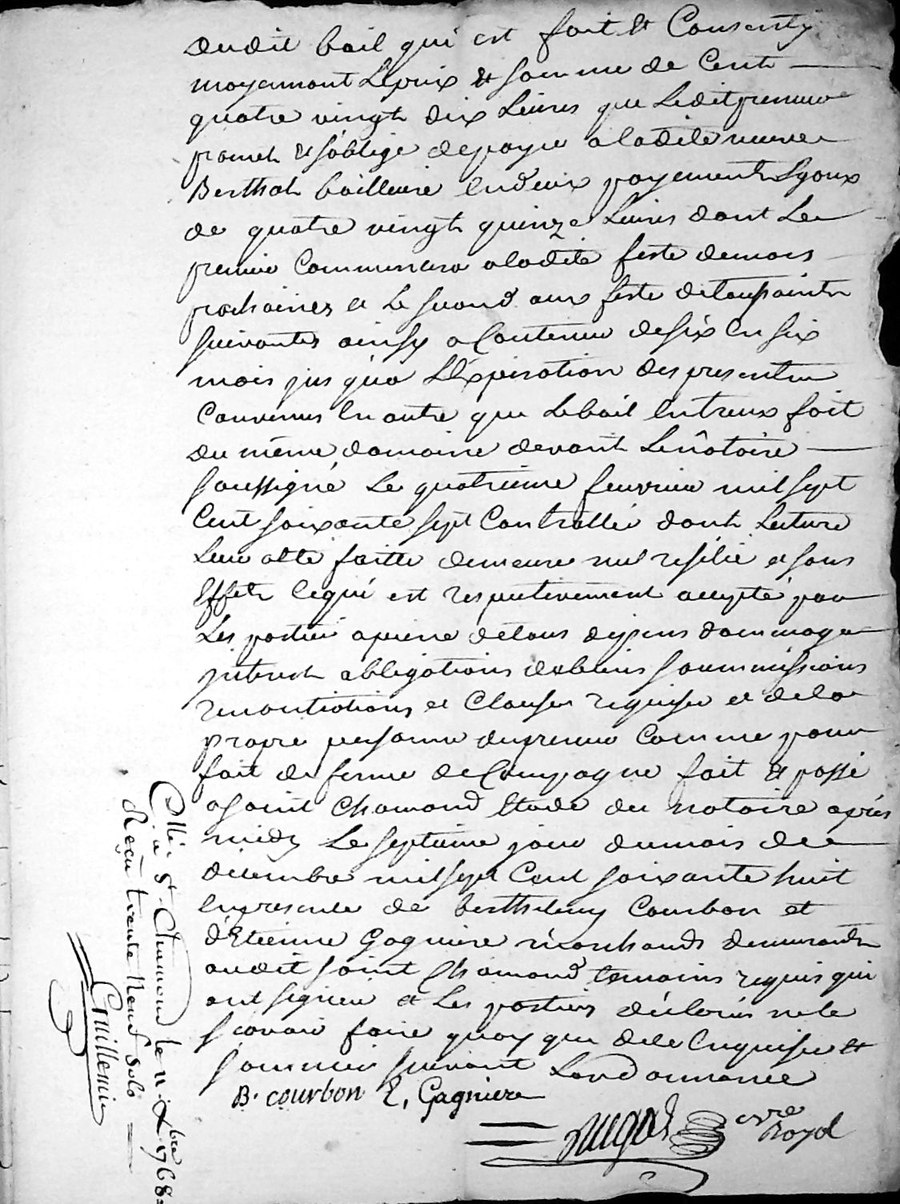 dudit bail qui est fait et Consenty
moyennant Leprix et somme de Cent
quatre vingt dix Livres que Ledit preneur
promet et s'oblige depayer a ladite veuve
Berthol bailleuse En deux payements Egaux
de quatre vingt quinze Livres dont Le
premier Commencera a ladite feste de mars
prochaines et Le second aux feste de toussaints
suivantes ainsy a Continuer de six En six
mois jus qu'a L'Expiration des presentes
Convenus En outre que Lebail Entreux fait
du même domaine devant Le notaire
soussigné Le quatrieme feuvrier mil sept
Cent soixante sept Controllé dont Lecture
Leur a été faitte demeure nul resilié et sans
Effets Cequi est respectivement accepté par
Les parties a peine de tous depens dommages
interest obligations de biens soummissions
renontiations et Clauses requises et de la
propre personne du preneur Comme pour
fait de ferme de Campagne fait et passé
a saint Chamond Etude du notaire après
midy Le septieme jour du mois de
decembre mil sept Cent soixante huit
En presence de berthelemy Courbon et
d'Etienne Gagniere marchands demeurants
audit saint Chamond temoins requis qui
ont signés et Les parties déclarés ne le
scavoir faire quoy que de ce Enquises et
sommées suivant Lordonnance
B. Courbon E, Gagniere
nre
Royal
C.llé a St. Chamond le 11 Xbre 1768
Reçu trente Neuf sols
Guillemin